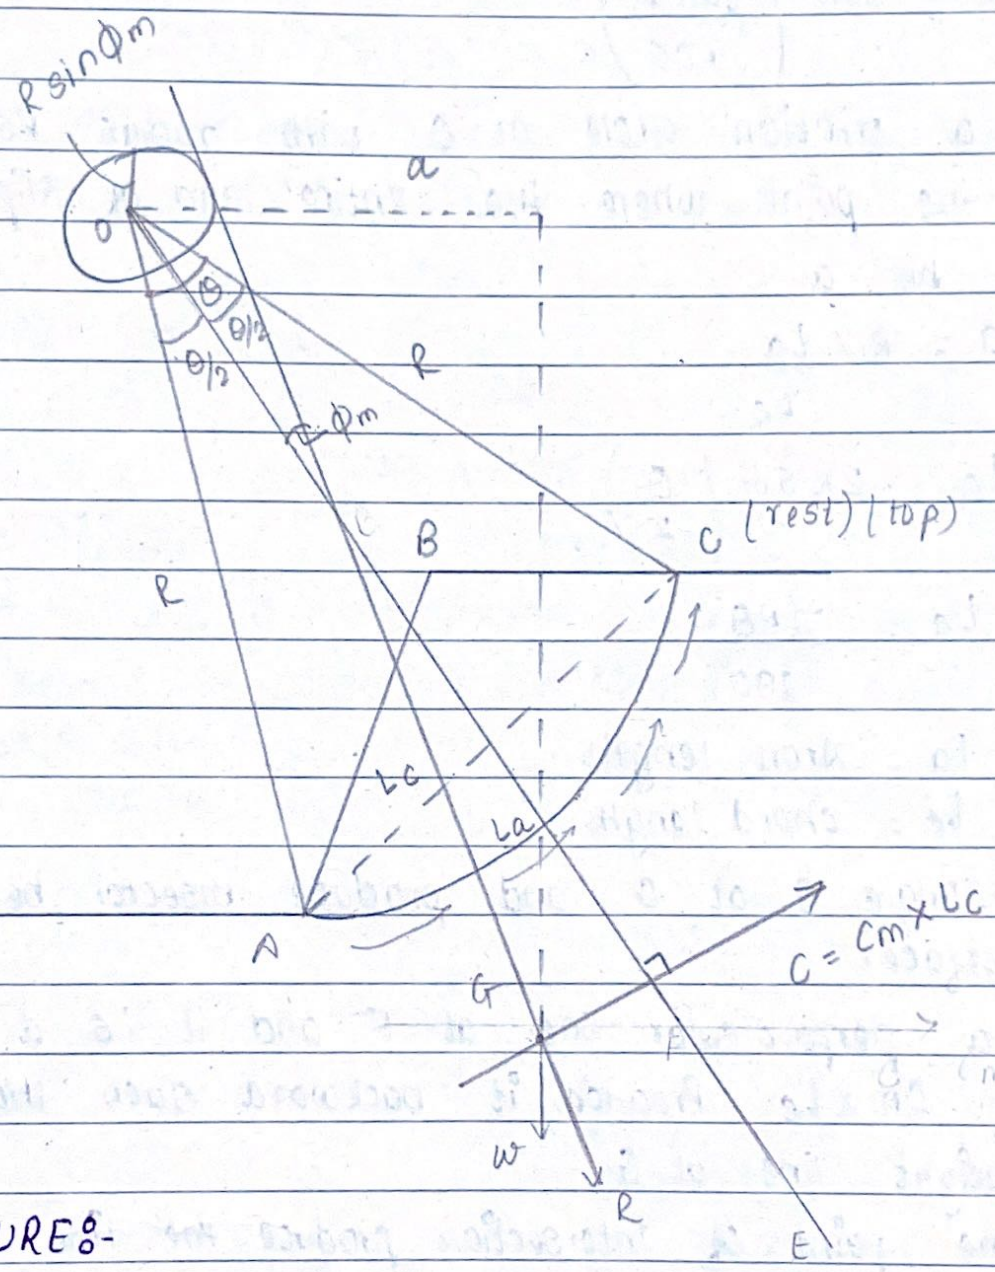 R sin ϕm
a
O
θ
θ/2
θ/2
R
ϕm
B
C (rest) (top)
R
Lc
La
A
C = Cm × Lc
G
F
W
R
E
URE:-